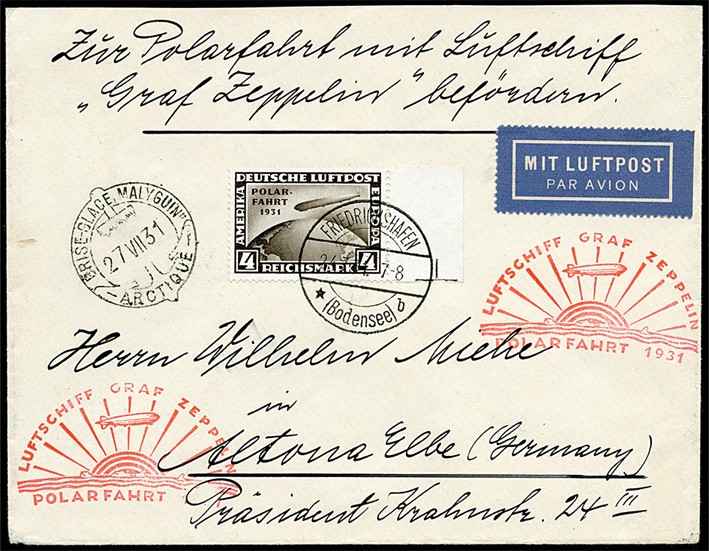 Zur Polarfahrt mit Luftschiff
„Graf Zeppelin" befördern.
MIT LUFTPOST
PAR AVION
DEUTSCHE LUFTPOST
AMERIKA
EUROPA
POLAR-
FAHRT
1931
4 REICHSMARK 4
BRISE-GLACE „MALYGUIN"
27 VII 31
ARCTIQUE
FRIEDRICHSHAFEN
7-8
(Bodensee) d
LUFTSCHIFF GRAF ZEPPELIN
POLARFAHRT 1931
Herrn Wilhelm Miehe
in
Altona Elbe (Germany)
Präsident Krahnstr. 24 III
LUFTSCHIFF GRAF ZEPPELIN
POLARFAHRT